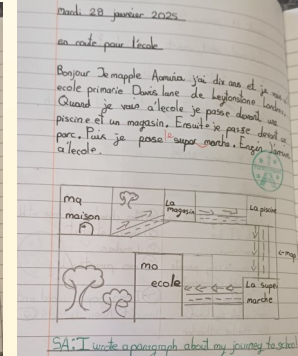 Mardi 28 janvier 2025
en route pour l'école
Bonjour Je mapple j'ai dix ans et je
ecole primarie Davis lane de Leytonstone
Quand je vais a l'ecole je passe devant une
piscine et un magasin. Ensuite je passe devant un
parc. Puis je passe le super marche.
a l'ecole.
ma
maison
La
magasin
La piscine
map
mo
ecole
La super
marche
SA: I wrote a paragraph about my journey to school